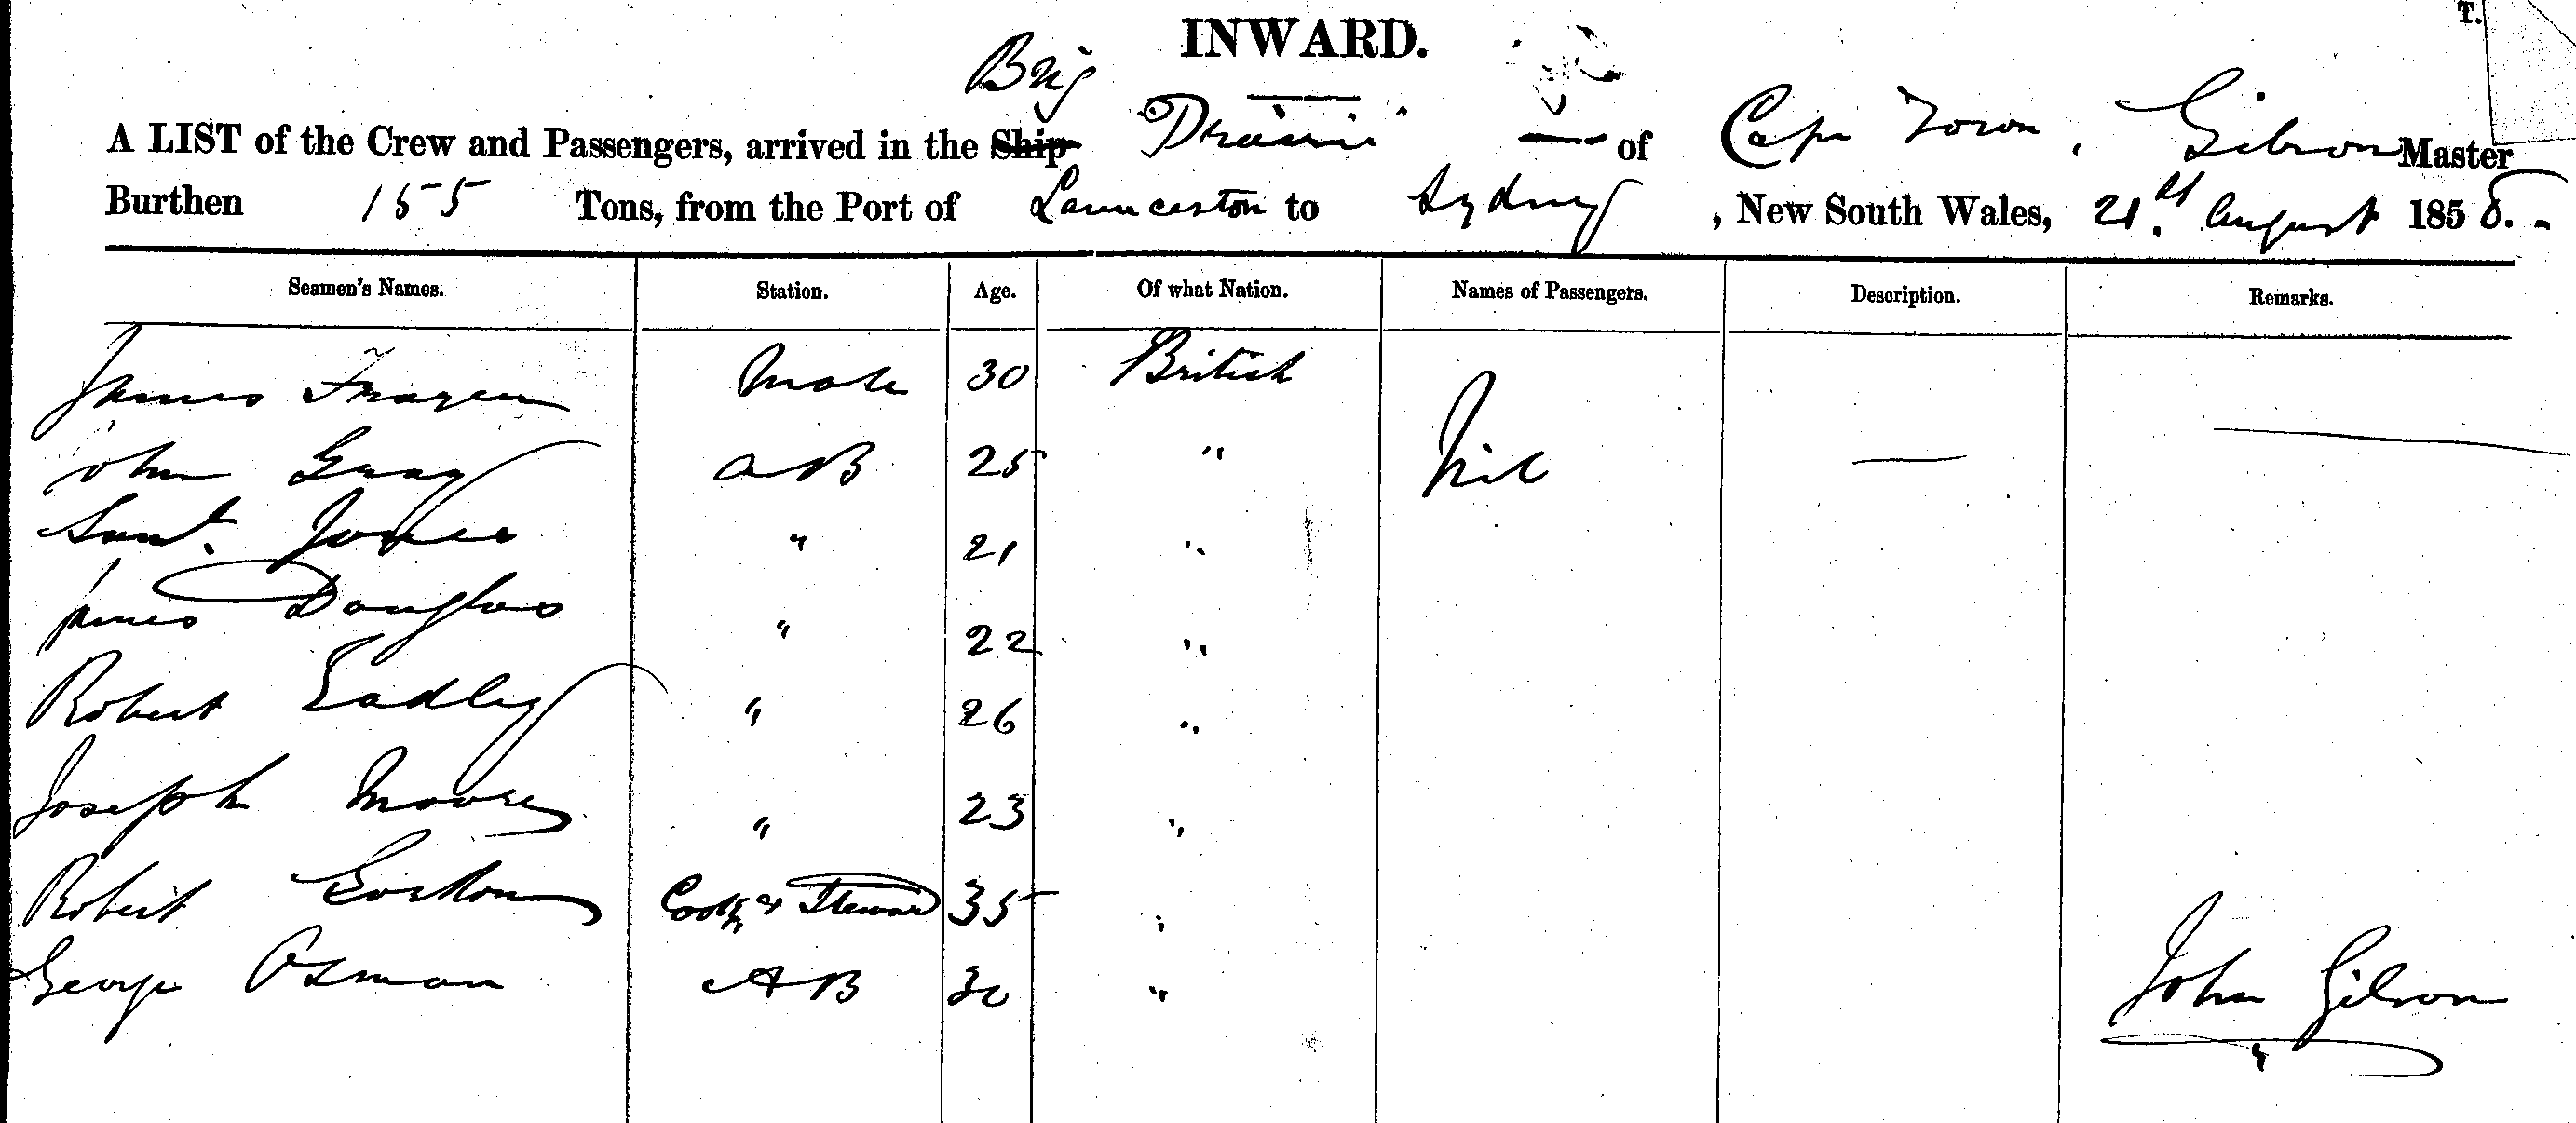 T.
INWARD.
Brig
A LIST of the Crew and Passengers, arrived in the Ship of Cape Town, Gibson Master
Burthen 155 Tons, from the Port of Launceston to Sydney, New South Wales, 21st August 1858.
Seamen's Names. Station. Age. Of what Nation. Names of Passengers. Description. Remarks.
James Frazer Mate 30 British Nil —
John Gray AB 25 "
Saml. Jones " 21 "
James Douglas " 22 "
Robert Eadley " 26 "
Joseph Moore " 23 "
Robert Gordon Cook & Steward 35 "
George Osman AB 30 " John Gibson